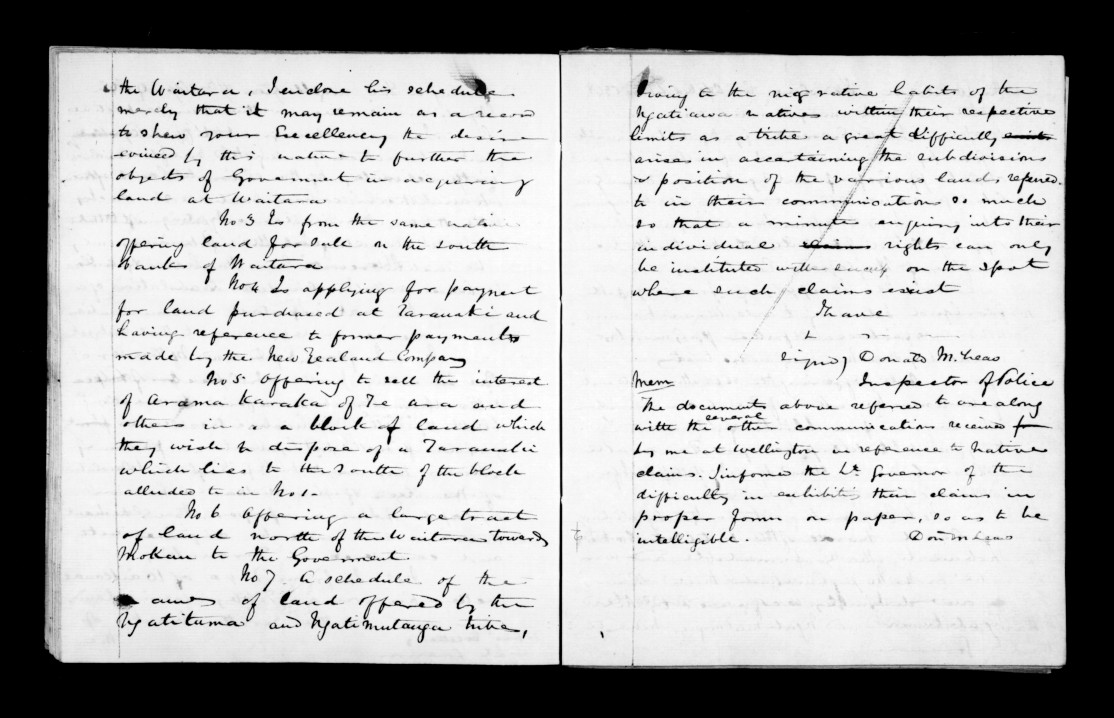 the Waitara, I enclose his schedule
merely that it may remain as a record
to shew your Excellency the desire
evinced by this native to further the
objects of Government in acquiring
land at Waitara
No 3 Is from the same native
offering land for sale on the south
bank of Waitara
No 4 Is applying for payment
for land purchased at Taranaki and
having reference to former payments
made by the New Zealand Company
No 5 Offering to sell the interest
of Arama Karaka of Te Ava and
others in a block of land which
they wish to dispose of a Taranaki
which lies to the South of the block
alluded to in No 1.
No 6 Offering a large tract
of land north of the Waitara towards
Mokau to the Government.
No 7 A schedule of the
names of land offered by the
Ngatitama and Ngatimutanga tribe,
Owing to the migrative habits of the
Ngatiawa natives within their respective
limits as a tribe a great difficulty exists
arises in ascertaining the subdivisions
& position of the various lands referred
to in their communications so much
so that a minute enquiry into their
individual claims rights can only
be instituted on the spot
where such claims exist
I have
signed) Donald McLean
Inspector of Police
Mem
The documents above referred to are along
with the several other communications received from
by me at Wellington in reference to native
claims. I informed the Lt. Governor of the
difficulty in exhibiting their claims in
proper form on paper, so as to be
intelligible. Don McLean